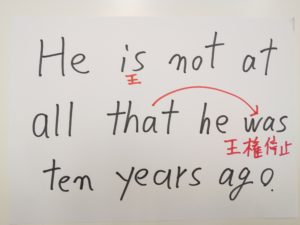 He is not at
王
all that he was
王権停止
ten years ago.